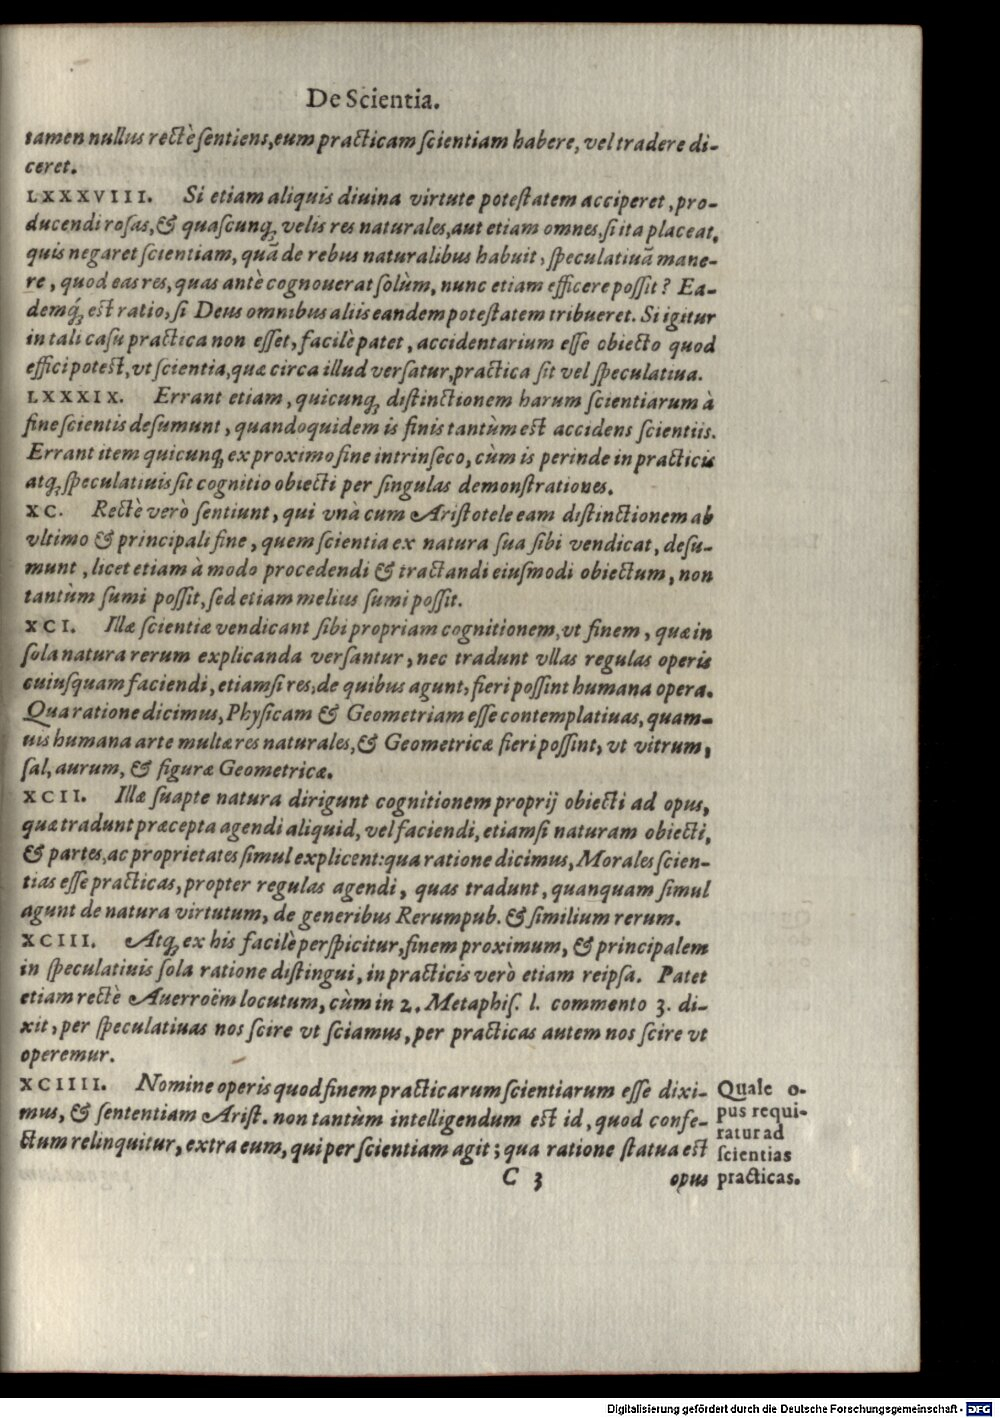 De Scientia.
tamen nullus rectè ſentiens, eum practicam ſcientiam habere, vel tradere di-
ceret.
LXXXVIII. Si etiam aliquis diuina virtute poteſtatem acciperet, pro-
ducendi roſas, & quaſcunq; velis res naturales, aut etiam omnes, ſi ita placeat,
quis negaret ſcientiam, quā de rebus naturalibus habuit, ſpeculatiuā mane-
re, quod eas res, quas antè cognouerat ſolùm, nunc etiam efficere poſſit? Ea-
demq́; eſt ratio, ſi Deus omnibus aliis eandem poteſtatem tribueret. Si igitur
in tali caſu practica non eſſet, facilè patet, accidentarium eſſe obiecto quod
effici poteſt, vt ſcientia, quæ circa illud verſatur, practica ſit vel ſpeculatiua.
LXXXIX. Errant etiam, quicunq; diſtinctionem harum ſcientiarum à
fine ſcientis deſumunt, quandoquidem is finis tantùm eſt accidens ſcientiis.
Errant item quicunq; ex proximo fine intrinſeco, cùm is perinde in practicis
atq; ſpeculatiuis ſit cognitio obiecti per ſingulas demonſtrationes.
XC. Rectè verò ſentiunt, qui vnà cum Ariſtotele eam diſtinctionem ab
vltimo & principali fine, quem ſcientia ex natura ſua ſibi vendicat, deſu-
munt, licet etiam à modo procedendi & tractandi eiuſmodi obiectum, non
tantùm ſumi poſſit, ſed etiam melius ſumi poſſit.
XCI. Illæ ſcientiæ vendicant ſibi propriam cognitionem, vt finem, quæ in
ſola natura rerum explicanda verſantur, nec tradunt vllas regulas operis
cuiuſquam faciendi, etiamſi res, de quibus agunt, fieri poſſint humana opera.
Qua ratione dicimus, Phyſicam & Geometriam eſſe contemplatiuas, quam-
uis humana arte multæ res naturales, & Geometricæ fieri poſſint, vt vitrum,
ſal, aurum, & figuræ Geometricæ.
XCII. Illæ ſuapte natura dirigunt cognitionem proprij obiecti ad opus,
quæ tradunt præcepta agendi aliquid, vel faciendi, etiamſi naturam obiecti,
& partes, ac proprietates ſimul explicent: qua ratione dicimus, Morales ſcien-
tias eſſe practicas, propter regulas agendi, quas tradunt, quanquam ſimul
agunt de natura virtutum, de generibus Rerumpub. & ſimilium rerum.
XCIII. Atq; ex his facilè perſpicitur, finem proximum, & principalem
in ſpeculatiuis ſola ratione diſtingui, in practicis verò etiam reipſa. Patet
etiam rectè Auerroëm locutum, cùm in 2. Metaphiſ. l. commento 3. di-
xit, per ſpeculatiuas nos ſcire vt ſciamus, per practicas autem nos ſcire vt
operemur.
XCIIII. Nomine operis quod finem practicarum ſcientiarum eſſe dixi-
mus, & ſententiam Ariſt. non tantùm intelligendum eſt id, quod confe-
ctum relinquitur, extra eum, qui per ſcientiam agit; qua ratione ſtatua eſt
C 3 opus
Quale o-
pus requi-
ratur ad
ſcientias
practicas.
Digitalisierung gefördert durch die Deutsche Forschungsgemeinschaft - DFG